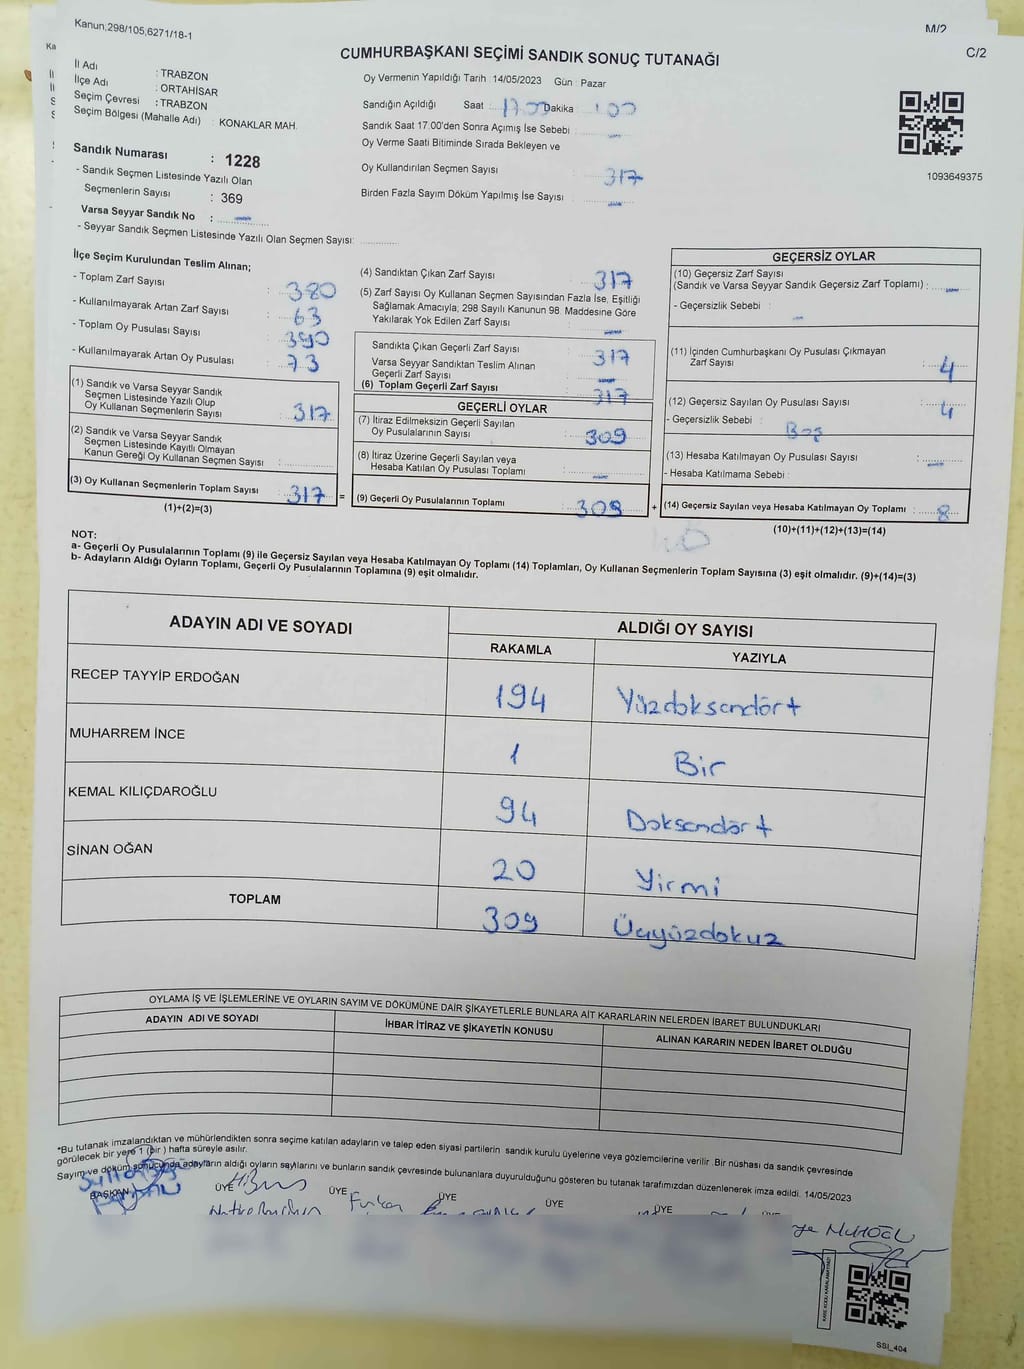 Kanun;298/105,6271/18-1
M/2
C/2
CUMHURBAŞKANI SEÇİMİ SANDIK SONUÇ TUTANAĞI
İl Adı : TRABZON
İlçe Adı : ORTAHİSAR
Seçim Çevresi : TRABZON
Seçim Bölgesi (Mahalle Adı) : KONAKLAR MAH.
Oy Vermenin Yapıldığı Tarih :14/05/2023 Gün : Pazar
Sandığın Açıldığı Saat : 17.00 Dakika : 00
Sandık Saat 17:00'den Sonra Açımış İse Sebebi : —
Oy Verme Saati Bitiminde Sırada Bekleyen ve
Oy Kullandırılan Seçmen Sayısı : 317
Birden Fazla Sayım Döküm Yapılmış İse Sayısı : —
1093649375
Sandık Numarası : 1228
- Sandık Seçmen Listesinde Yazılı Olan
Seçmenlerin Sayısı : 369
Varsa Seyyar Sandık No : —
- Seyyar Sandık Seçmen Listesinde Yazılı Olan Seçmen Sayısı:
İlçe Seçim Kurulundan Teslim Alınan;
- Toplam Zarf Sayısı : 380
- Kullanılmayarak Artan Zarf Sayısı : 63
- Toplam Oy Pusulası Sayısı : 390
- Kullanılmayarak Artan Oy Pusulası : 73
(1) Sandık ve Varsa Seyyar Sandık
Seçmen Listesinde Yazılı Olup
Oy Kullanan Seçmenlerin Sayısı : 317
(2) Sandık ve Varsa Seyyar Sandık
Seçmen Listesinde Kayıtlı Olmayan
Kanun Gereği Oy Kullanan Seçmen Sayısı :
(3) Oy Kullanan Seçmenlerin Toplam Sayısı : 317 =
(1)+(2)=(3)
(4) Sandıktan Çıkan Zarf Sayısı : 317
(5) Zarf Sayısı Oy Kullanan Seçmen Sayısından Fazla İse, Eşitliği
Sağlamak Amacıyla; 298 Sayılı Kanunun 98. Maddesine Göre
Yakılarak Yok Edilen Zarf Sayısı : —
Sandıkta Çıkan Geçerli Zarf Sayısı : 317
Varsa Seyyar Sandıktan Teslim Alınan
Geçerli Zarf Sayısı : —
(6) Toplam Geçerli Zarf Sayısı : 317
GEÇERLİ OYLAR
(7) İtiraz Edilmeksizin Geçerli Sayılan
Oy Pusulalarının Sayısı : 309
(8) İtiraz Üzerine Geçerli Sayılan veya
Hesaba Katılan Oy Pusulası Toplamı : —
(9) Geçerli Oy Pusulalarının Toplamı : 309 +
GEÇERSİZ OYLAR
(10) Geçersiz Zarf Sayısı
(Sandık ve Varsa Seyyar Sandık Geçersiz Zarf Toplamı) : —
- Geçersizlik Sebebi : —
(11) İçinden Cumhurbaşkanı Oy Pusulası Çıkmayan
Zarf Sayısı : 4
(12) Geçersiz Sayılan Oy Pusulası Sayısı : 4
- Geçersizlik Sebebi : Boş
(13) Hesaba Katılmayan Oy Pusulası Sayısı : —
- Hesaba Katılmama Sebebi :
(14) Geçersiz Sayılan veya Hesaba Katılmayan Oy Toplamı : 8
(10)+(11)+(12)+(13)=(14)
NOT:
a- Geçerli Oy Pusulalarının Toplamı (9) ile Geçersiz Sayılan veya Hesaba Katılmayan Oy Toplamı (14) Toplamları, Oy Kullanan Seçmenlerin Toplam Sayısına (3) eşit olmalıdır. (9)+(14)=(3)
b- Adayların Aldığı Oyların Toplamı, Geçerli Oy Pusulalarının Toplamına (9) eşit olmalıdır.
ADAYIN ADI VE SOYADI ALDIĞI OY SAYISI
RAKAMLA YAZIYLA
RECEP TAYYİP ERDOĞAN 194 Yüzdoksandört
MUHARREM İNCE 1 Bir
KEMAL KILIÇDAROĞLU 94 Doksandört
SİNAN OĞAN 20 Yirmi
TOPLAM 309 Üçyüzdokuz
OYLAMA İŞ VE İŞLEMLERİNE VE OYLARIN SAYIM VE DÖKÜMÜNE DAİR ŞİKAYETLERLE BUNLARA AİT KARARLARIN NELERDEN İBARET BULUNDUKLARI
ADAYIN ADI VE SOYADI İHBAR İTİRAZ VE ŞİKAYETİN KONUSU ALINAN KARARIN NEDEN İBARET OLDUĞU
*Bu tutanak imzalandıktan ve mühürlendikten sonra seçime katılan adayların ve talep eden siyasi partilerin sandık kurulu üyelerine veya gözlemcilerine verilir. Bir nüshası da sandık çevresinde
görülecek bir yere 1 (bir ) hafta süreyle asılır.
Sayım ve döküm sonucunda adayların aldığı oyların sayılarını ve bunların sandık çevresinde bulunanlara duyurulduğunu gösteren bu tutanak tarafımızdan düzenlenerek imza edildi. 14/05/2023
BAŞKAN ÜYE ÜYE ÜYE ÜYE ÜYE ÜYE
SSI_404